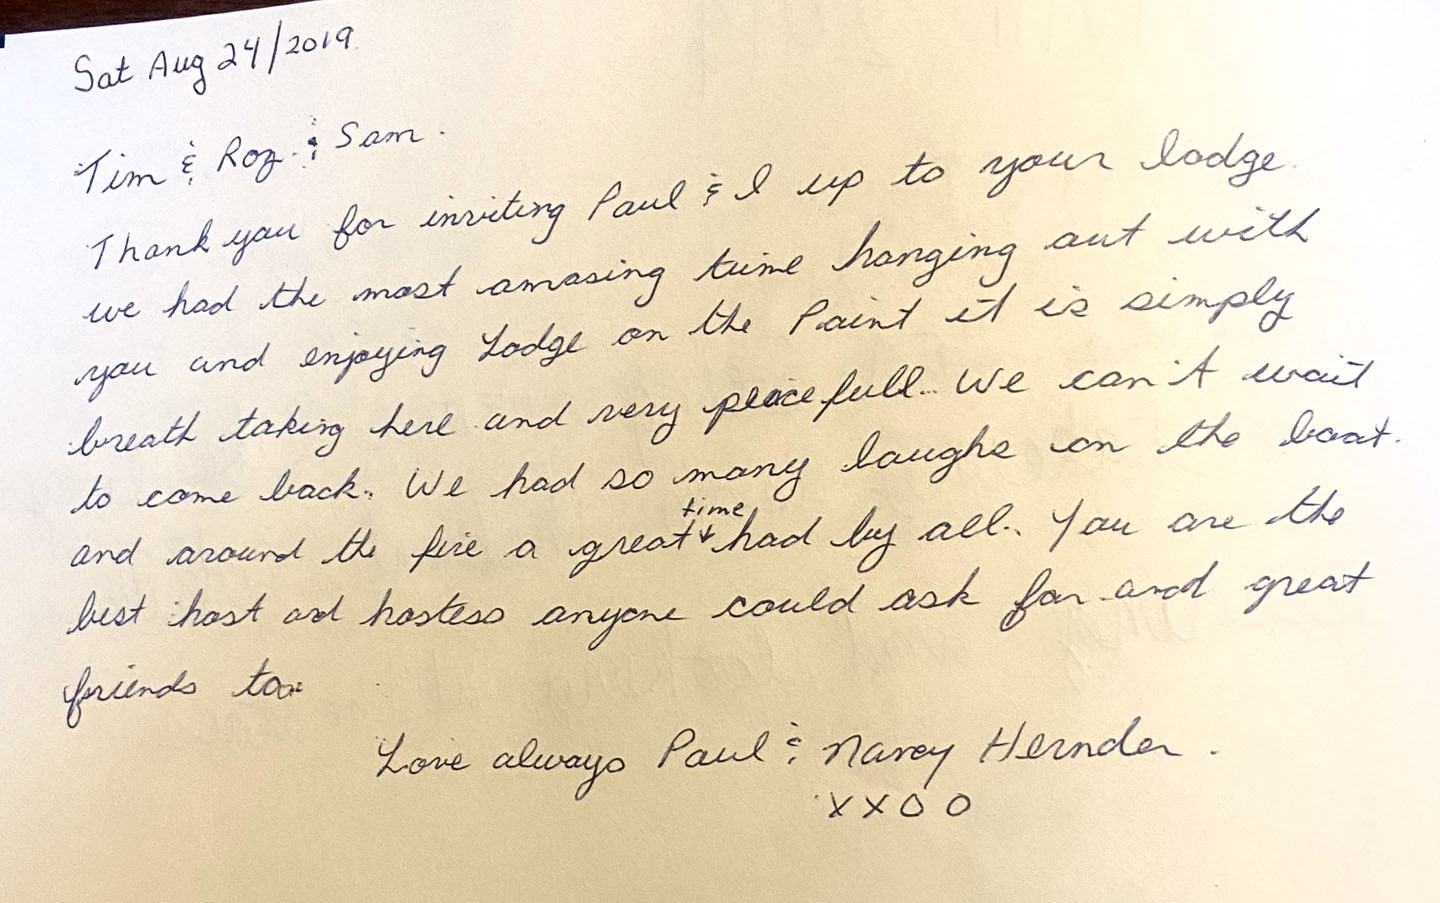 Sat Aug 24/2019
Tim & Roz. & Sam.
Thank you for inviting Paul & I up to your lodge.
we had the most amasing time hanging out with
you and enjoying Lodge on the Point it is simply
breath taking here and very peacefull.. We can't wait
to come back. We had so many laughs on the boat.
and around the fire a great time had by all.. You are the
best host and hostess anyone could ask for and great
friends too
Love always Paul & Nancy
xxoo